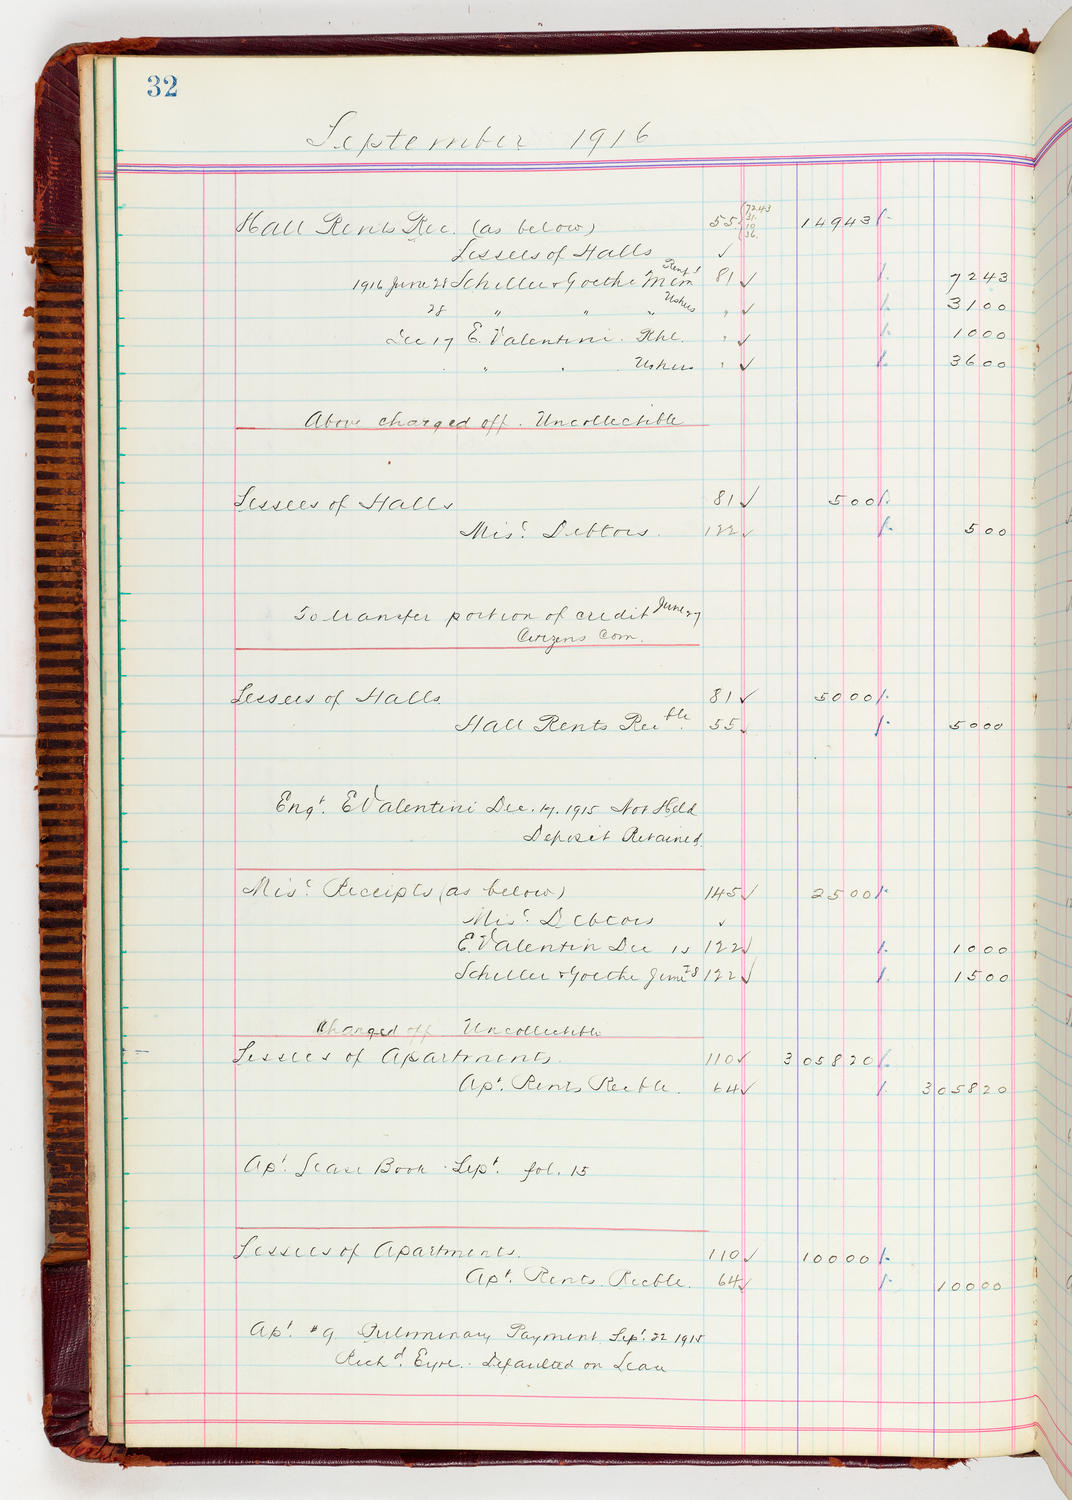 32
September 1916
Hall Rents Rec. (as below) 55 { 7243 31. 10 36. 14943
Lessees of Halls ✓
1916 June 28 Schiller & Goethe Mem Rent 81 ✓ 7243
28 " " " Ushers " ✓ 3100
Dec 17 E. Valentini. Rhl. " ✓ 1000
" " Ushers " ✓ 3600
Above charged off. Uncollectible
Lessees of Halls 81 ✓ 500
Misc. Debtors. 122 ✓ 500
To transfer portion of credit June 27
Citizens Com.
Lessees of Halls 81 ✓ 5000
Hall Rents Recble. 55 ✓ 5000
Engt. E Valentini Dec. 17. 1915 Not Held
Deposit Retained.
Misc. Receipts (as below) 145 ✓ 2500
Misc. Debtors ✓
E. Valentin Dec 15 122 ✓ 1000
Schiller & Goethe June 28 122 ✓ 1500
Charged off Uncollectible
Lessees of Apartments. 110 ✓ 305820
Apt. Rents Recble. 64 ✓ 305820
Apt. Lease Book. Sept. fol. 15
Lessees of Apartments. 110 ✓ 10000
Apt. Rents. Recble. 64 ✓ 10000
Apt. #9 Payment Sept. 22 1915
Richd. Eyre. Defaulted on Lease